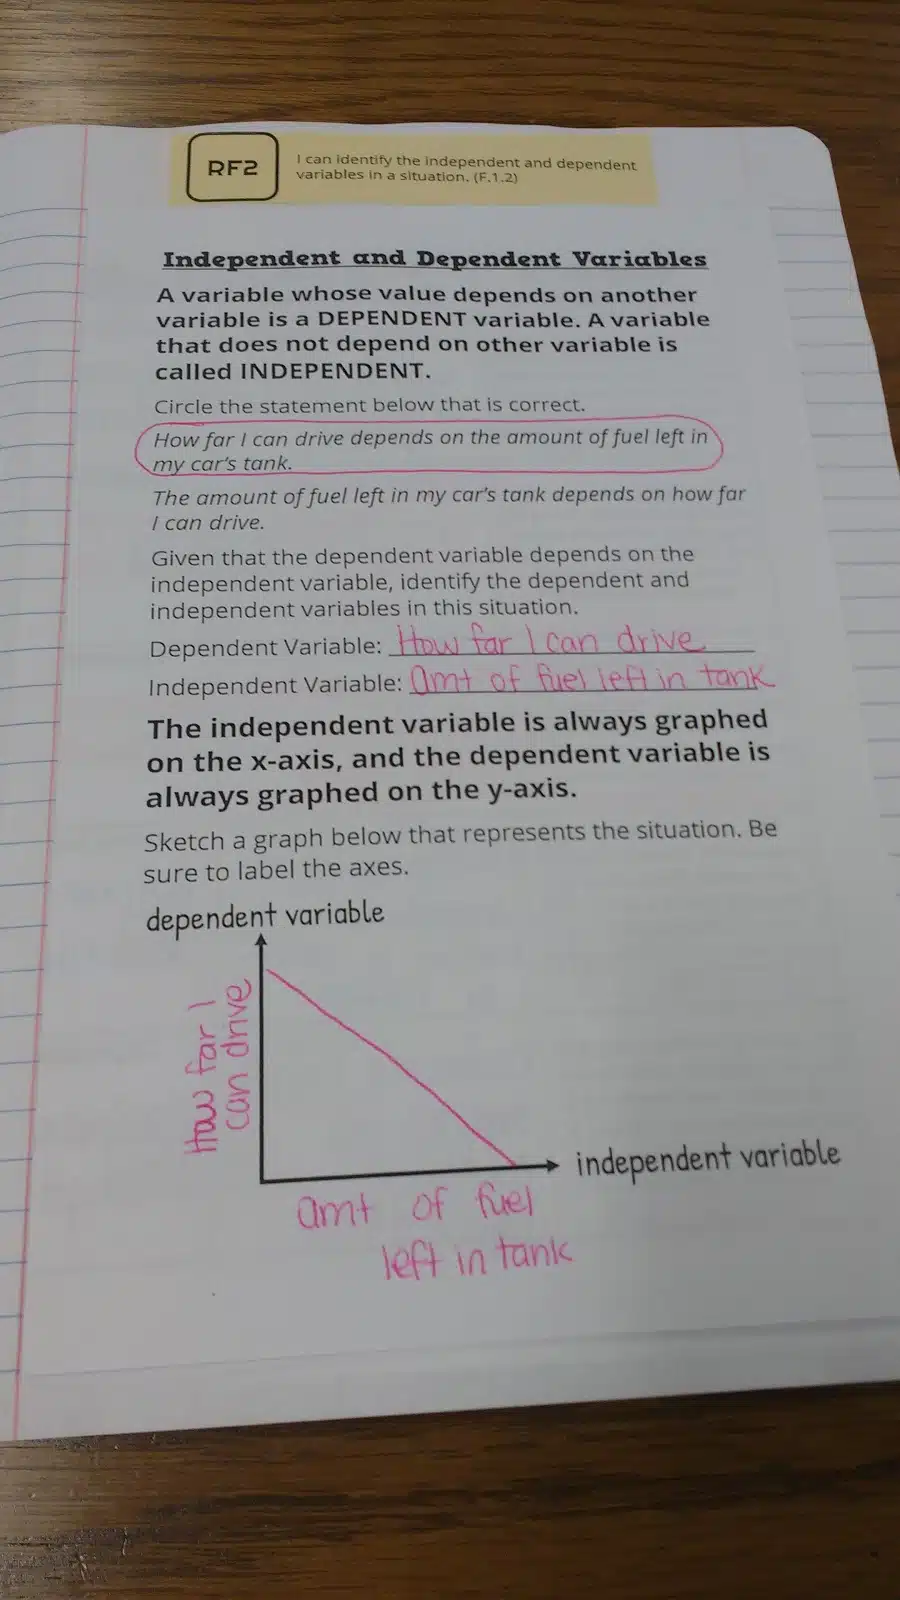 RF2
I can identify the independent and dependent
variables in a situation. (F.1.2)
Independent and Dependent Variables
A variable whose value depends on another
variable is a DEPENDENT variable. A variable
that does not depend on other variable is
called INDEPENDENT.
Circle the statement below that is correct.
How far I can drive depends on the amount of fuel left in
my car's tank.
The amount of fuel left in my car's tank depends on how far
I can drive.
Given that the dependent variable depends on the
independent variable, identify the dependent and
independent variables in this situation.
Dependent Variable: How far I can drive
Independent Variable: Amt of fuel left in tank
The independent variable is always graphed
on the x-axis, and the dependent variable is
always graphed on the y-axis.
Sketch a graph below that represents the situation. Be
sure to label the axes.
dependent variable
How far I
can drive
independent variable
Amt of fuel
left in tank